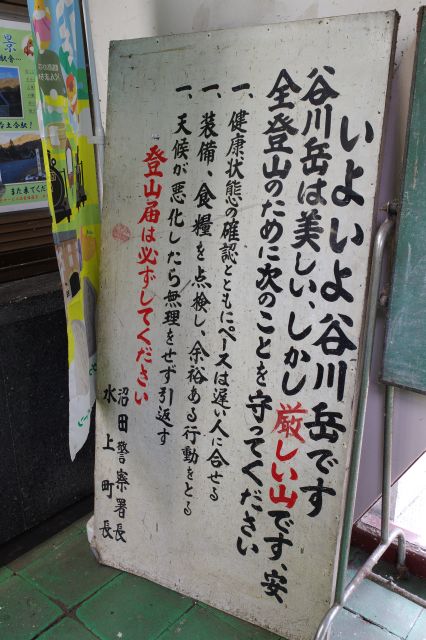 いよいよ谷川岳です
谷川岳は美しい、しかし厳しい山です、安
全登山のために次のことを守ってください
一、健康状態の確認とともにペースは遅い人に合せる
一、装備、食糧を点検し、余裕ある行動をとる
一、天候が悪化したら無理をせず引返す
登山届は必ずしてください
沼田警察署長
水上町長
景
また来てくだ